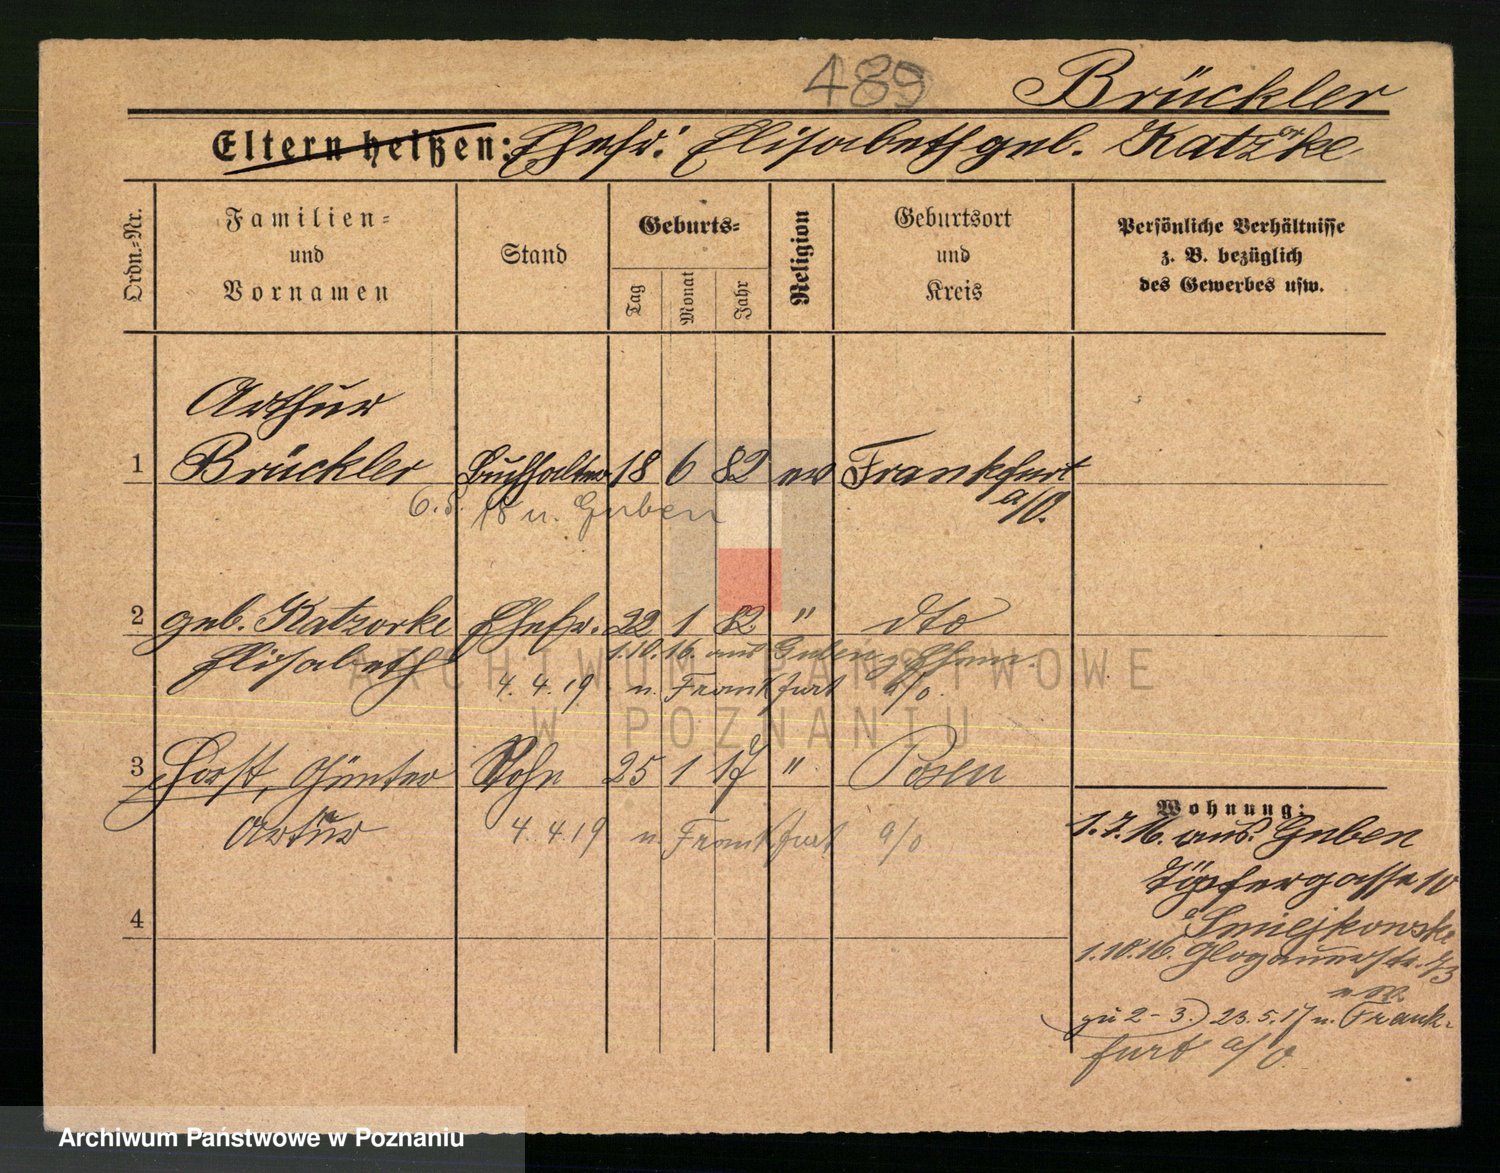 489
Brückler
Eltern heißen: Ehefr: Elisabeth geb. Katzorke
Ordn.=Nr.
Familien= und Vornamen
Stand
Geburts=
Tag
Monat
Jahr
Religion
Geburtsort und Kreis
Persönliche Verhältnisse
z. B. bezüglich
des Gewerbes usw.
Arthur
1 Brückler Buchhalter 18 6 82 ev Frankfurt
a/O.
6.5.18 n. Guben
2 geb. Katzorke Ehefr. 22 1 82 " dto
Elisabeth
1.10.16. aus Guben
4.4.19 n. Frankfurt a/O.
3 Horst, Günter Sohn 25 1 17 " Posen
Artur
4.4.19 n. Frankfurt a/O
4
Wohnung:
1.7.16. aus Guben
Töpfergasse 10
Smiejkowske
1.10.16. Glogauerstr.
zu 2-3.) 23.5.17 n. Frank-
furt a/O.
ARCHIWUM PAŃSTWOWE
W POZNANIU
Archiwum Państwowe w Poznaniu